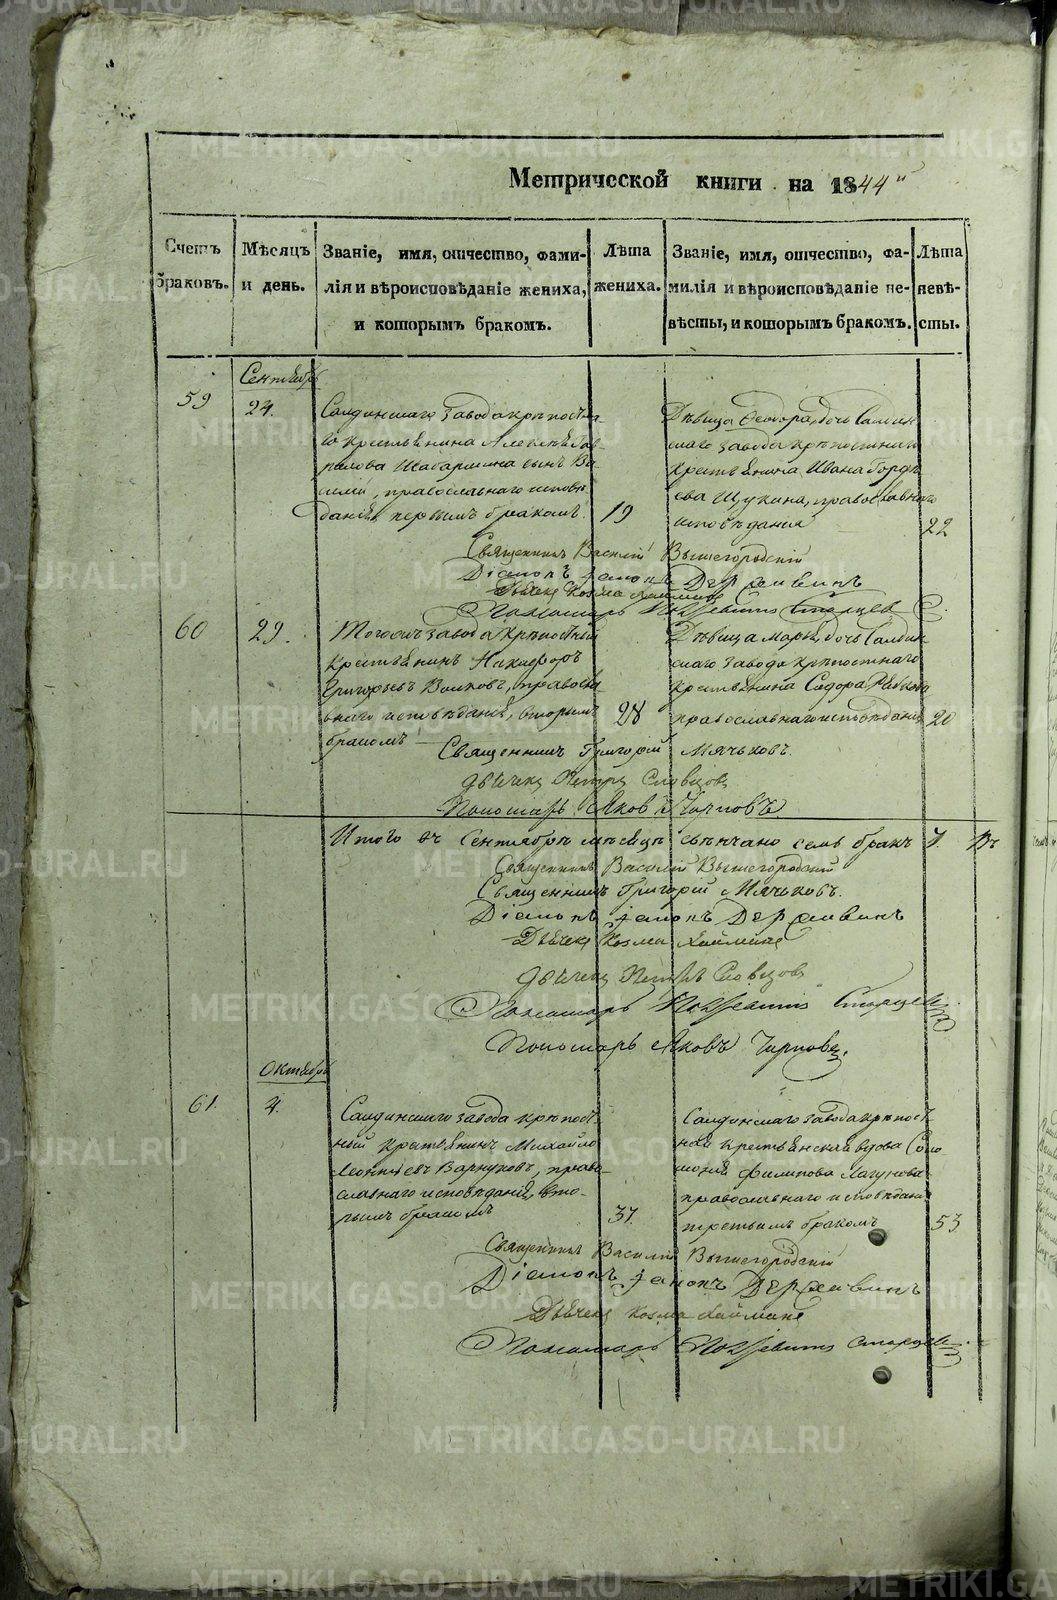 Метрической книги на 1844
Счетъ браковъ.
Мѣсяцъ и день.
Званіе, имя, отчество, фами-
лія и вѣроисповѣданіе жениха,
и которымъ бракомъ.
Лѣта
жениха.
Званіе, имя, отчество, фа-
милія и вѣроисповѣданіе не-
вѣсты, и которымъ бракомъ.
Лѣта
невѣ-
сты.
Сентябрь
59
24.
Салдинскаго завода крѣпостна
го крестьянина Алексѣя Гав
рилова Шабаршина сынъ Ва
силій, православнаго исповѣ
данія, первымъ бракомъ.
19
Дѣвица Феодора, дочь Салдин
скаго завода крѣпостнаго
крестьянина Ивана Гордѣ
ева Щукина, православнаго
исповѣданія
22
Священникъ Василій Вышегородскій
Діаконъ Державинъ
Дьячекъ Козма
Пономарь Старцев
60
29.
Тогожъ завода крѣпостный
крестьянинъ Никифоръ
Григорьевъ Волковъ, правосла
внаго исповѣданія, вторымъ
бракомъ
28
Дѣвица Марья, дочь Салдин
скаго завода крѣпостнаго
крестьянина Сидора
православнаго исповѣданія
20
Священникъ Григорій Мячковъ.
Дьячекъ Петръ Словцовъ
Пономарь Яковъ Чирковъ
Итого въ Сентябрѣ мѣсяцѣ свѣнчано семь бракъ 7.
Священникъ Василій Вышегородскій
Священникъ Григорій Мячковъ.
Діаконъ Державинъ
Дьячекъ Козма
Дьячекъ Петръ Словцовъ
Пономарь Старцев
Пономарь Яковъ Чирковъ.
Октябрь
61.
4.
Салдинскаго завода крѣпост
ный крестьянинъ Михайло
Леонтьевъ Варнуковъ, право
славнаго исповѣданія, вто-
рымъ бракомъ
37.
Салдинскаго завода крѣпост
ная крестьянская вдова Соло
монія Филипова Лагунова
православнаго исповѣданія
третьимъ бракомъ
53
Священникъ Василій Вышегородскій
Діаконъ Державинъ
Дьячекъ Козма
Пономарь Старцев
METRIKI.GASO-URAL.RU